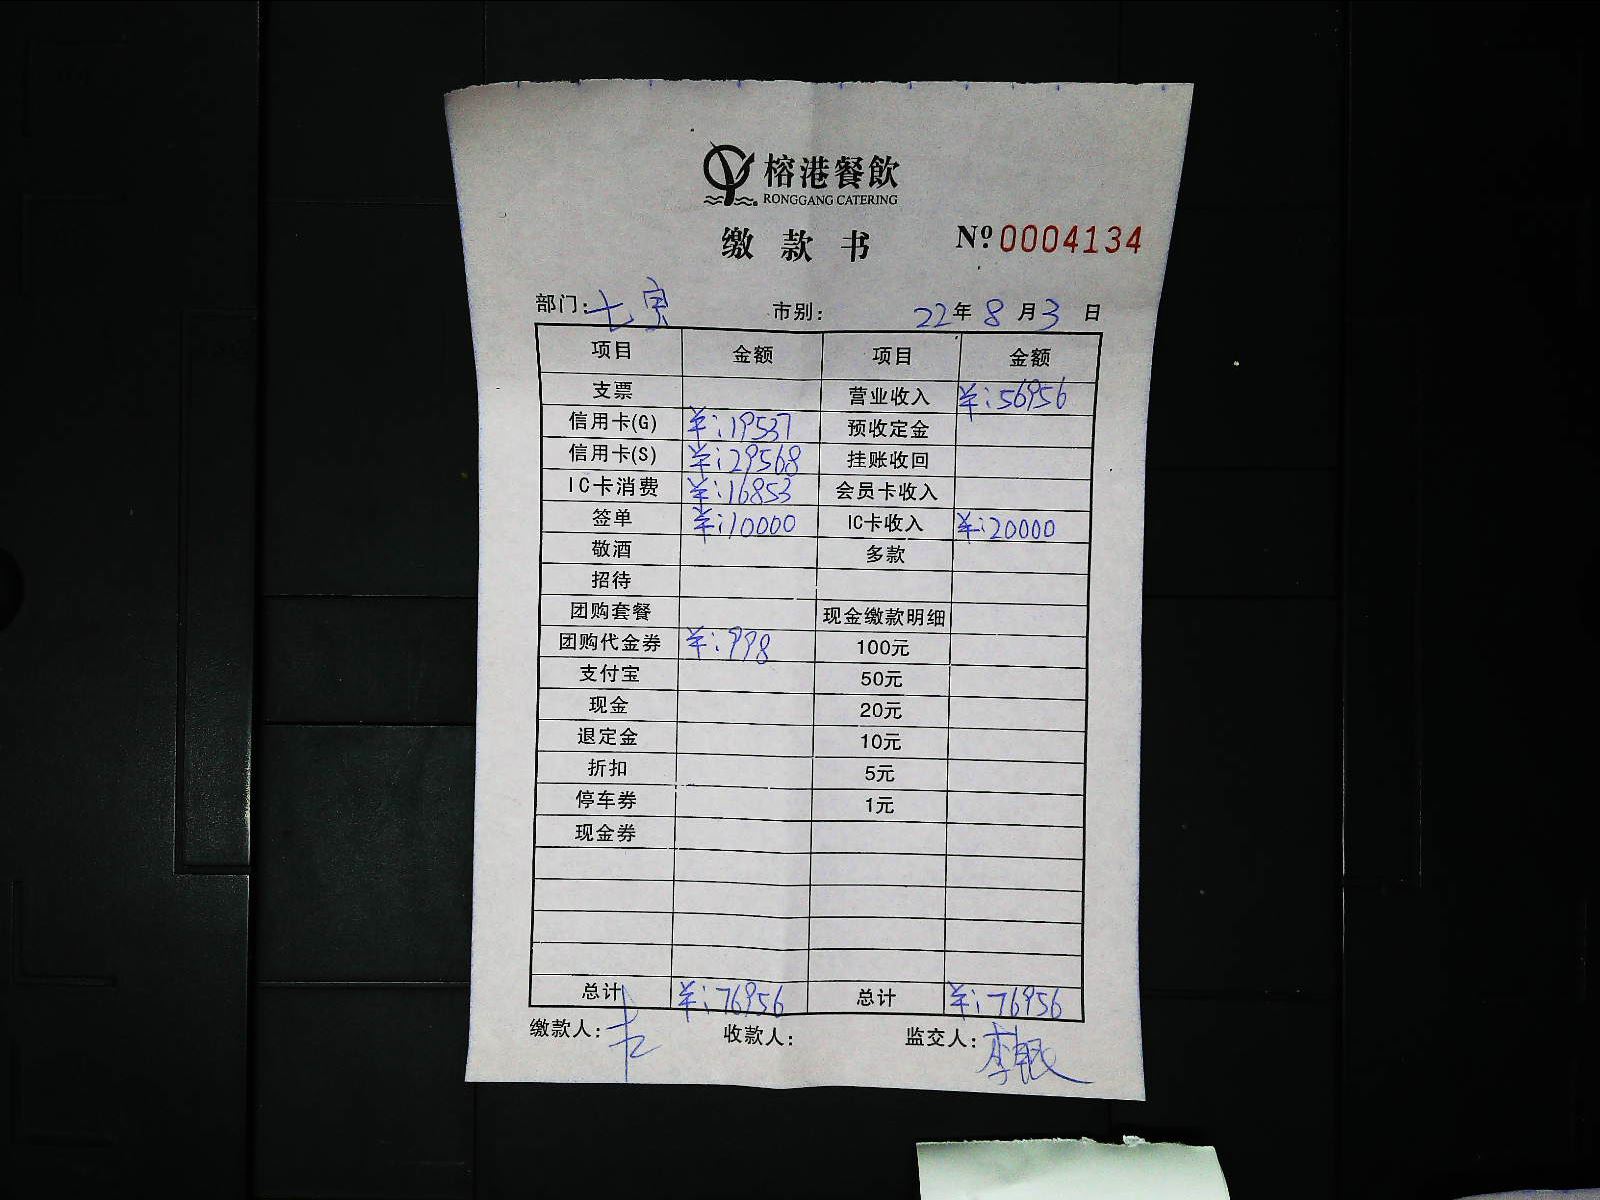 榕港餐飲
RONGGANG CATERING
缴款书 Nº 0004134
部门: 七宝 市别: 22年8月3日
项目 金额 项目 金额
支票 营业收入 ¥:56956
信用卡(G) ¥:19537 预收定金
信用卡(S) ¥:29568 挂账收回
IC卡消费 ¥:16853 会员卡收入
签单 ¥:10000 IC卡收入 ¥:20000
敬酒 多款
招待
团购套餐 现金缴款明细
团购代金券 ¥:998 100元
支付宝 50元
现金 20元
退定金 10元
折扣 5元
停车券 1元
现金券
总计 ¥:76956 总计 ¥:76956
缴款人: 收款人: 监交人: